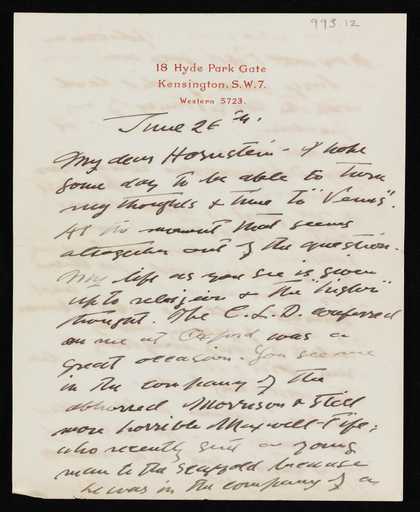 993.12
18 Hyde Park Gate
Kensington, S.W.7.
Western 5723.
June 26th.
My dear Hornstein - I hope
some day to be able to turn
my thoughts & time to "Venus".
At the moment that seems
altogether out of the question.
My life as you see is given
up to religion & the "higher"
thought. The L.L.D. conferred
on me at Oxford was a
great occasion. You see me
in the company of the
abhorred Morrison & still
more horrible Maxwell-Fife;
who recently sent a young
man to the scaffold because
he was in the company of a